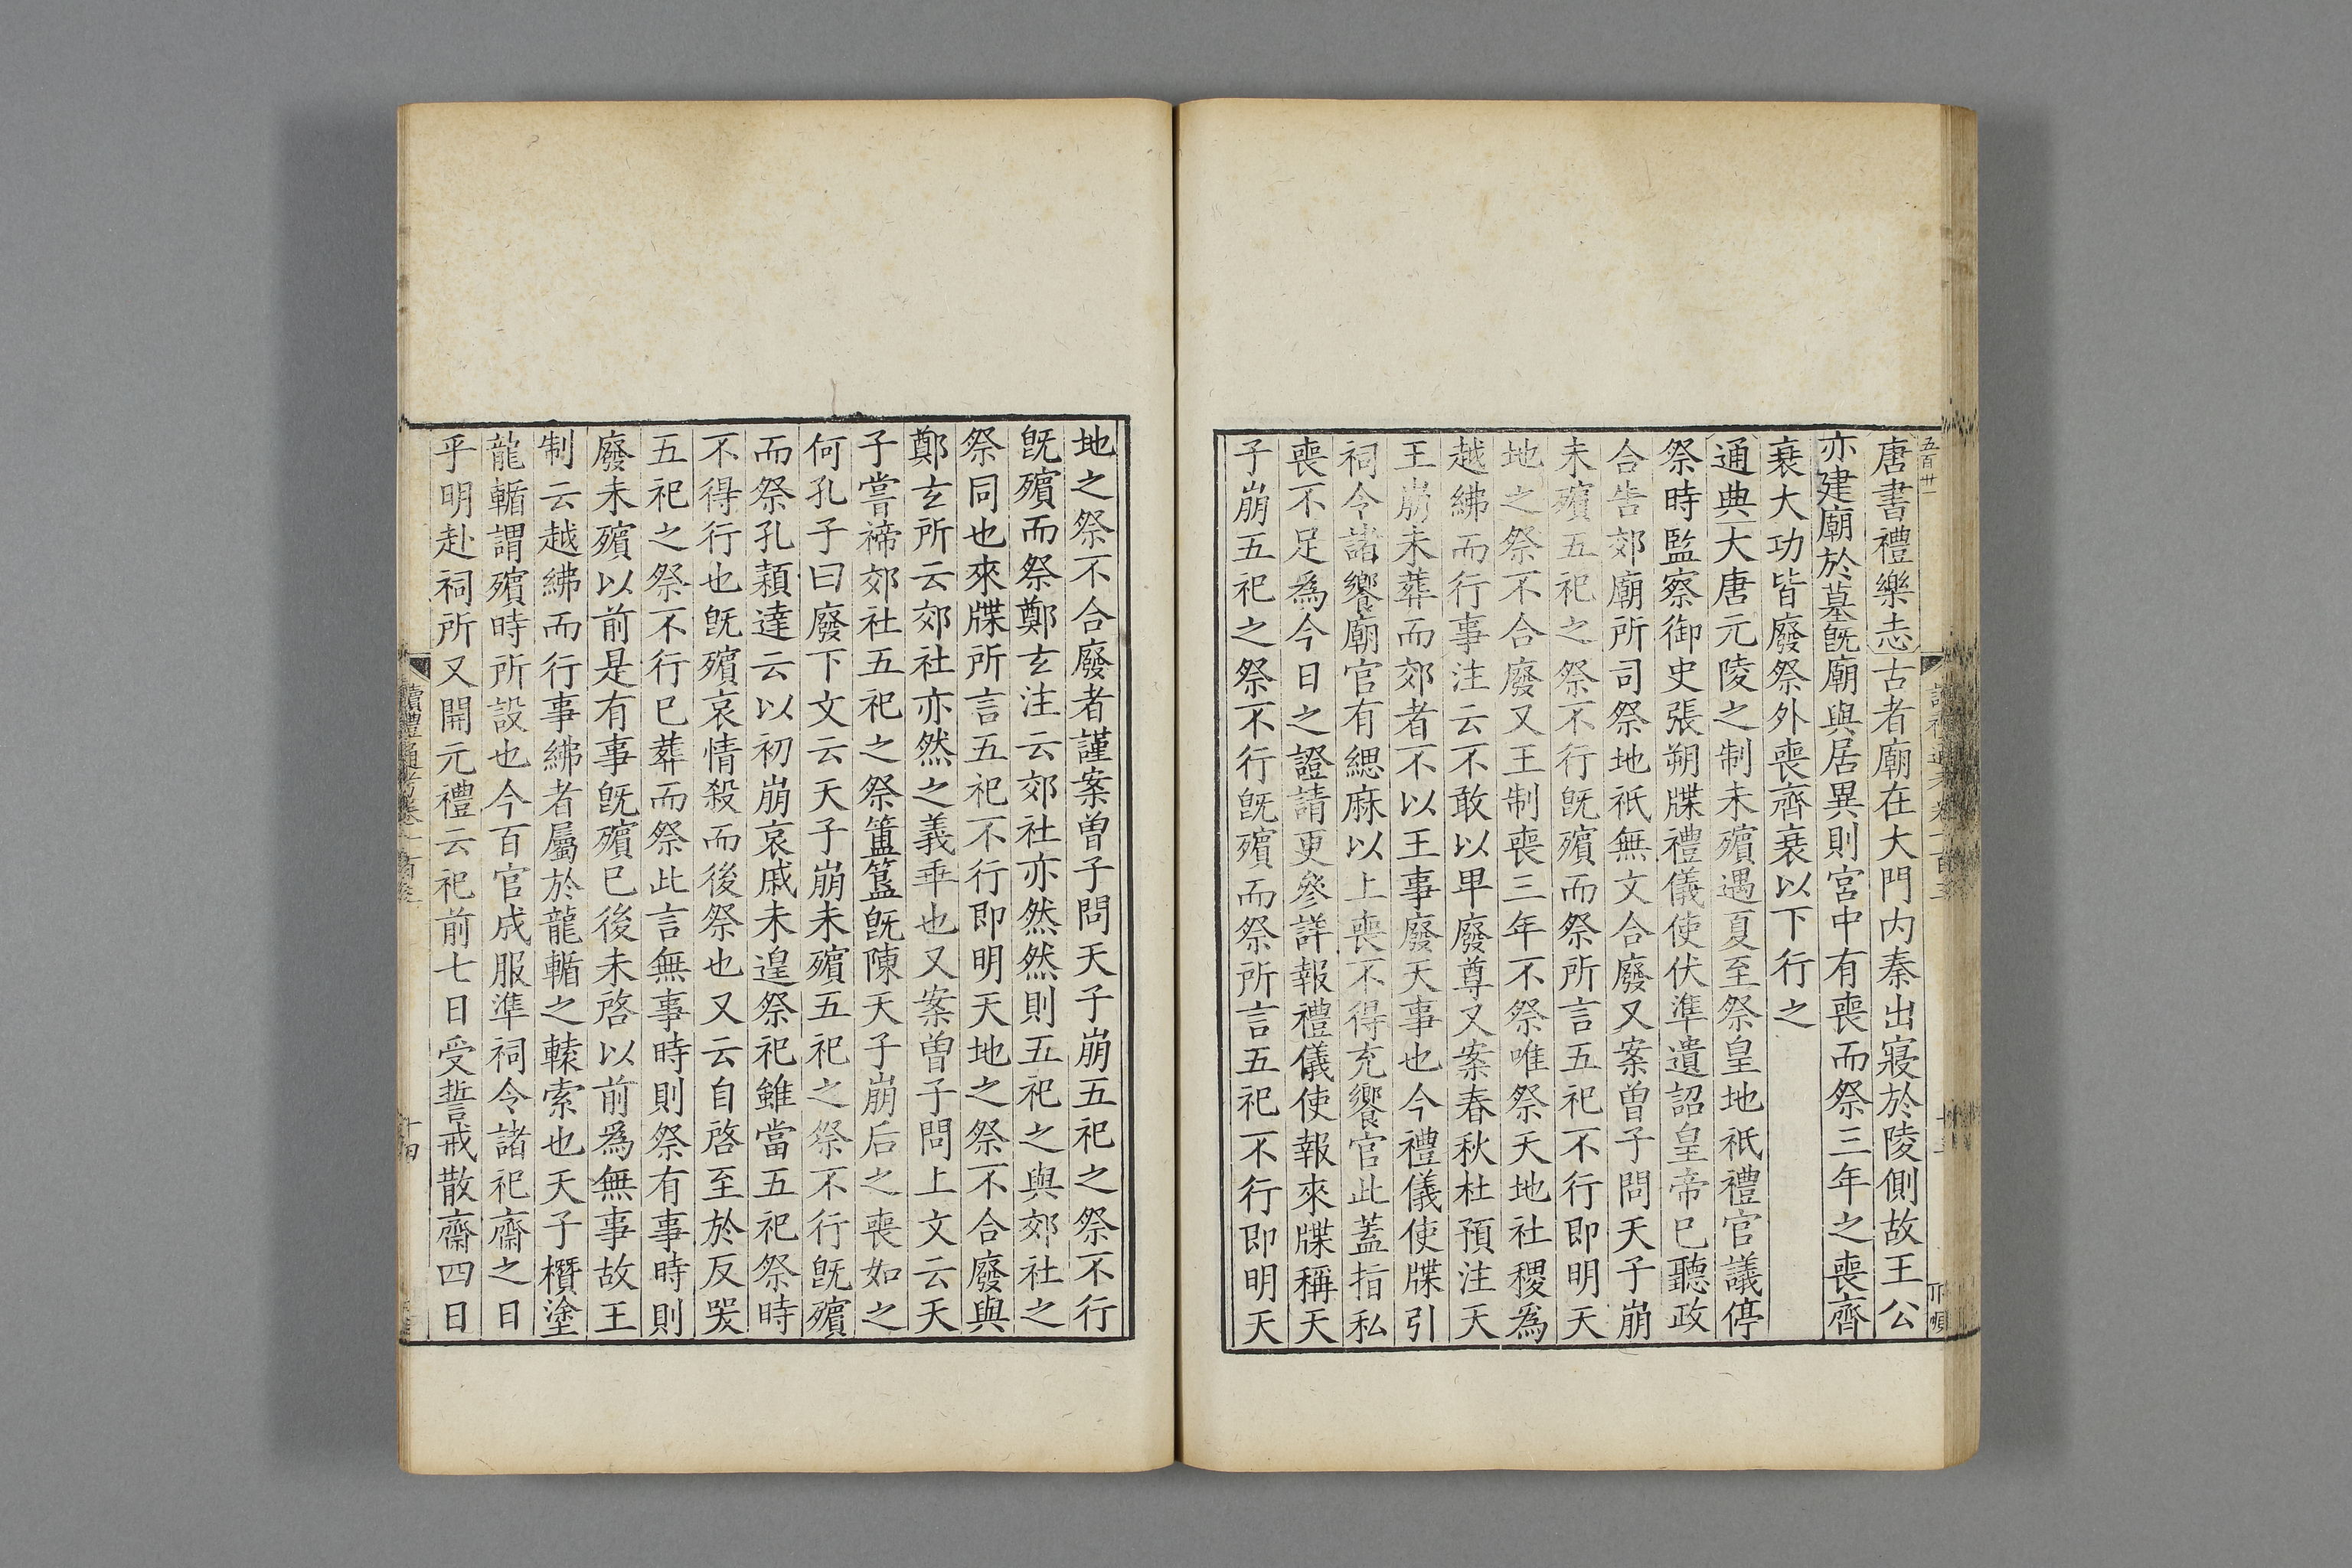 唐書禮樂志古者廟在大門内秦出寢於陵側故王公
亦建廟於墓旣廟與居異則宮中有喪而祭三年之喪齊
衰大功皆廢祭外喪齊衰以下行之
通典大唐元陵之制未殯遇夏至祭皇地祇禮官議停
祭時監察御史張朔牒禮儀使伏準遺詔皇帝巳聽政
合告郊廟所司祭地祇無文合廢又案曾子問天子崩
未殯五祀之祭不行旣殯而祭所言五祀不行即明天
地之祭不合廢又王制喪三年不祭唯祭天地社稷爲
越紼而行事注云不敢以卑廢尊又案春秋杜預注天
王崩未葬而郊者不以王事廢天事也今禮儀使牒引
祠令諸饗廟官有緦麻以上喪不得充饗官此蓋指私
喪不足爲今日之證請更參詳報禮儀使報來牒稱天
子崩五祀之祭不行旣殯而祭所言五祀不行即明天
地之祭不合廢者謹案曾子問天子崩五祀之祭不行
旣殯而祭鄭玄注云郊社亦然然則五祀之與郊社之
祭同也來牒所言五祀不行即明天地之祭不合廢與
鄭玄所云郊社亦然之義乖也又案曾子問上文云天
子嘗禘郊社五祀之祭簠簋旣陳天子崩后之喪如之
何孔子曰廢下文云天子崩未殯五祀之祭不行旣殯
而祭孔穎達云以初崩哀戚未遑祭祀雖當五祀祭時
不得行也旣殯哀情殺而後祭也又云自啓至於反哭
五祀之祭不行巳葬而祭此言無事時則祭有事時則
廢未殯以前是有事旣殯巳後未啓以前爲無事故王
制云越紼而行事紼者屬於龍輴之轅索也天子欑塗
龍輴謂殯時所設也今百官成服準祠令諸祀齋之日
乎明赴祠所又開元禮云祀前七日受誓戒散齋四日
讀禮通考卷一百
十四
五百卅一